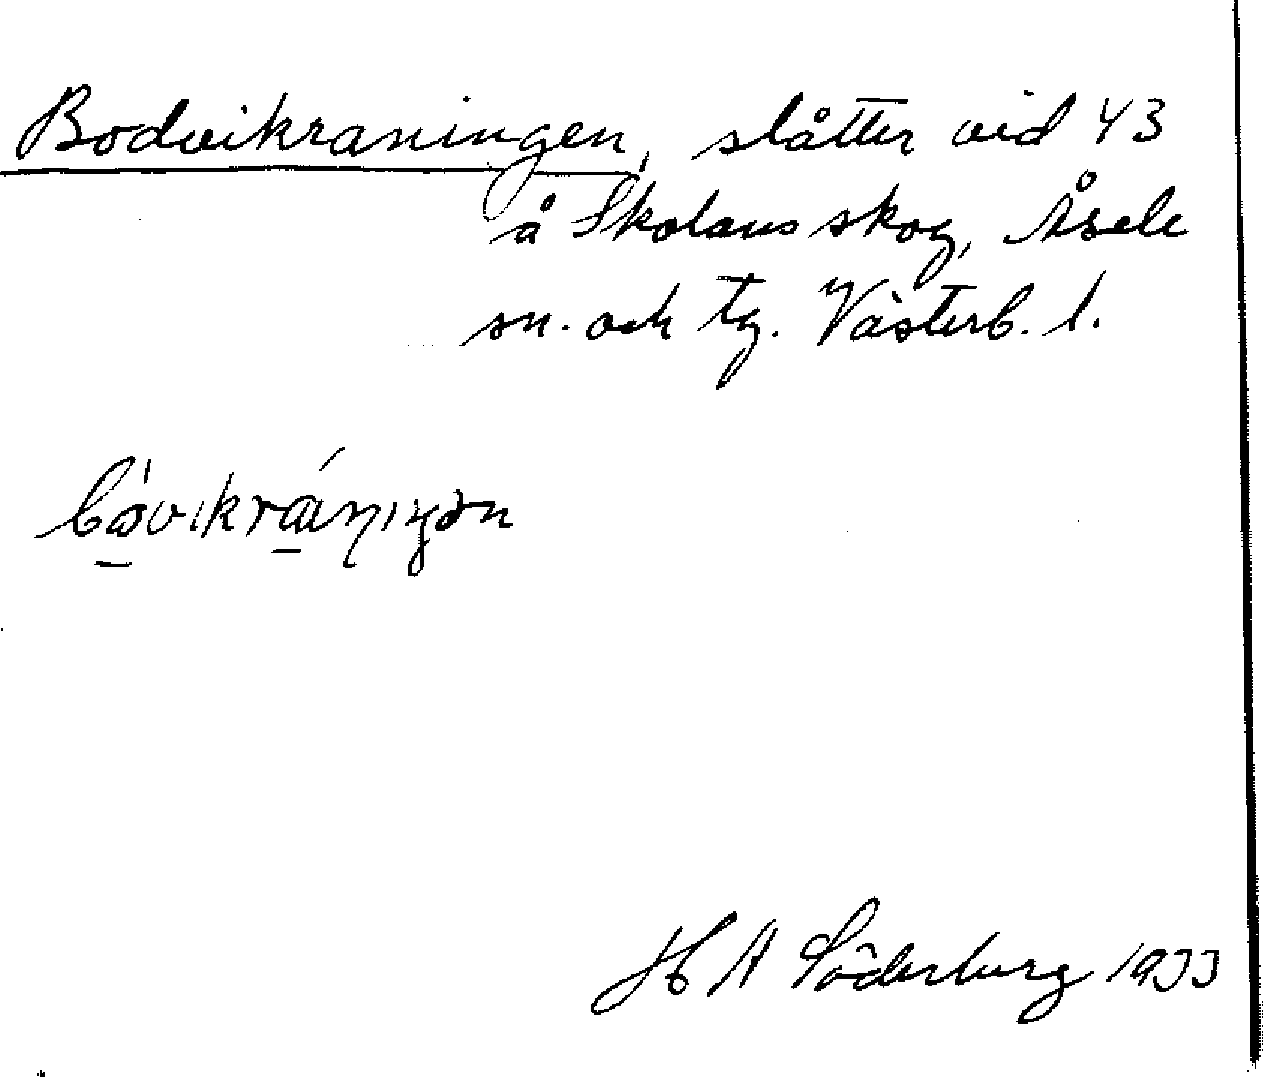 Bodvikraningen, slåtter vid 43
å Skolans skog, Åsele
sn. och tg. Västerb. l.
H A Söderburg 1933